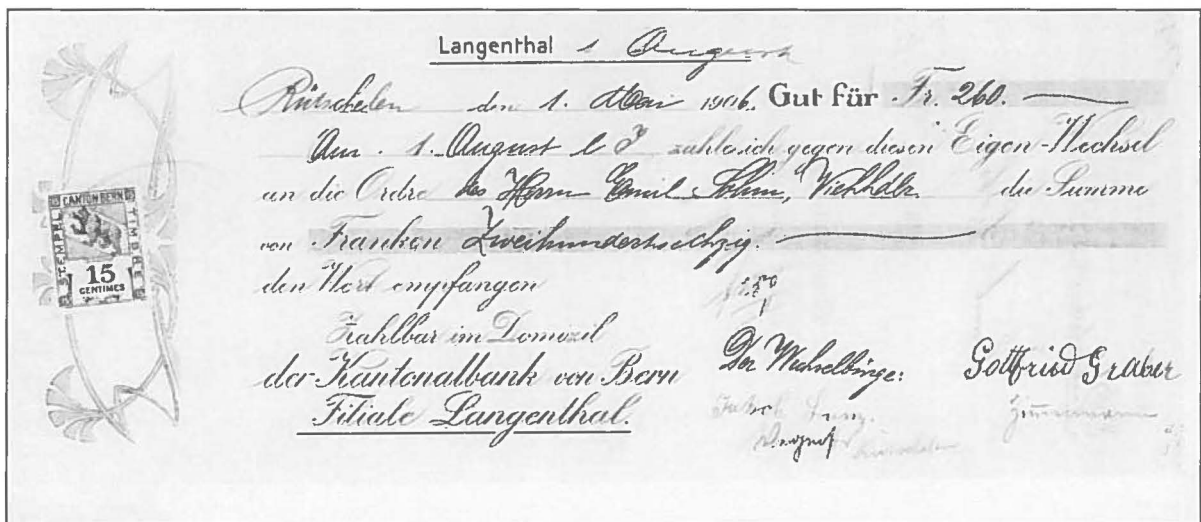 Langenthal 1 August
Rütscheden den 1. Mai 1906. Gut für Fr. 260.
Am 1. August l J zahle ich gegen diesen Eigen-Wechsel
an die Ordre des Herrn Emil Viehhdlr. die Summe
von Franken Zweihundertsechzig.
den Wert empfangen
Zahlbar im Domizil
der Kantonalbank von Bern
Filiale Langenthal.
Der Wechselbürge:
Gottfried Graber
STEMPEL
CANTON BERN
TIMBRE
15
CENTIMES